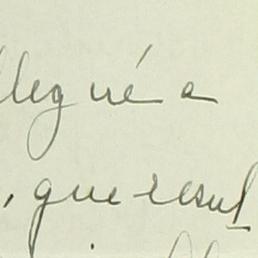 llegué a
, que resul